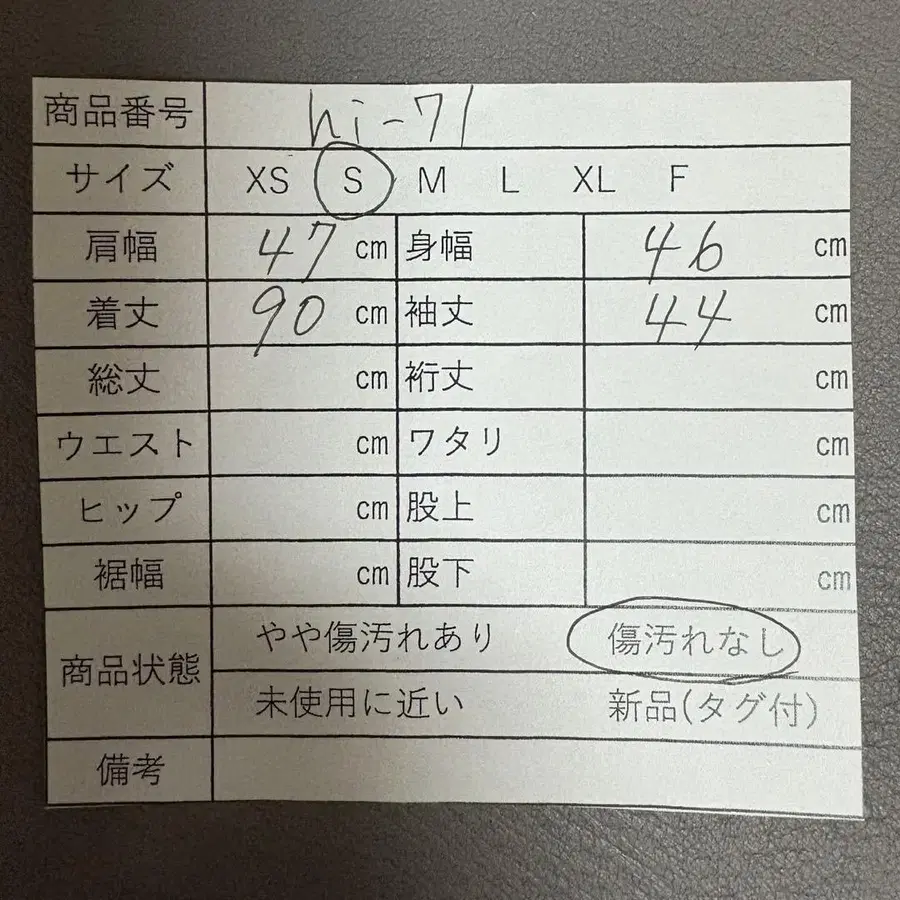 商品番号 hi-71
サイズ XS S M L XL F
肩幅 47 cm 身幅 46 cm
着丈 90 cm 袖丈 44 cm
総丈 cm 裄丈 cm
ウエスト cm ワタリ cm
ヒップ cm 股上 cm
裾幅 cm 股下 cm
商品状態 やや傷汚れあり 傷汚れなし
未使用に近い 新品(タグ付)
備考